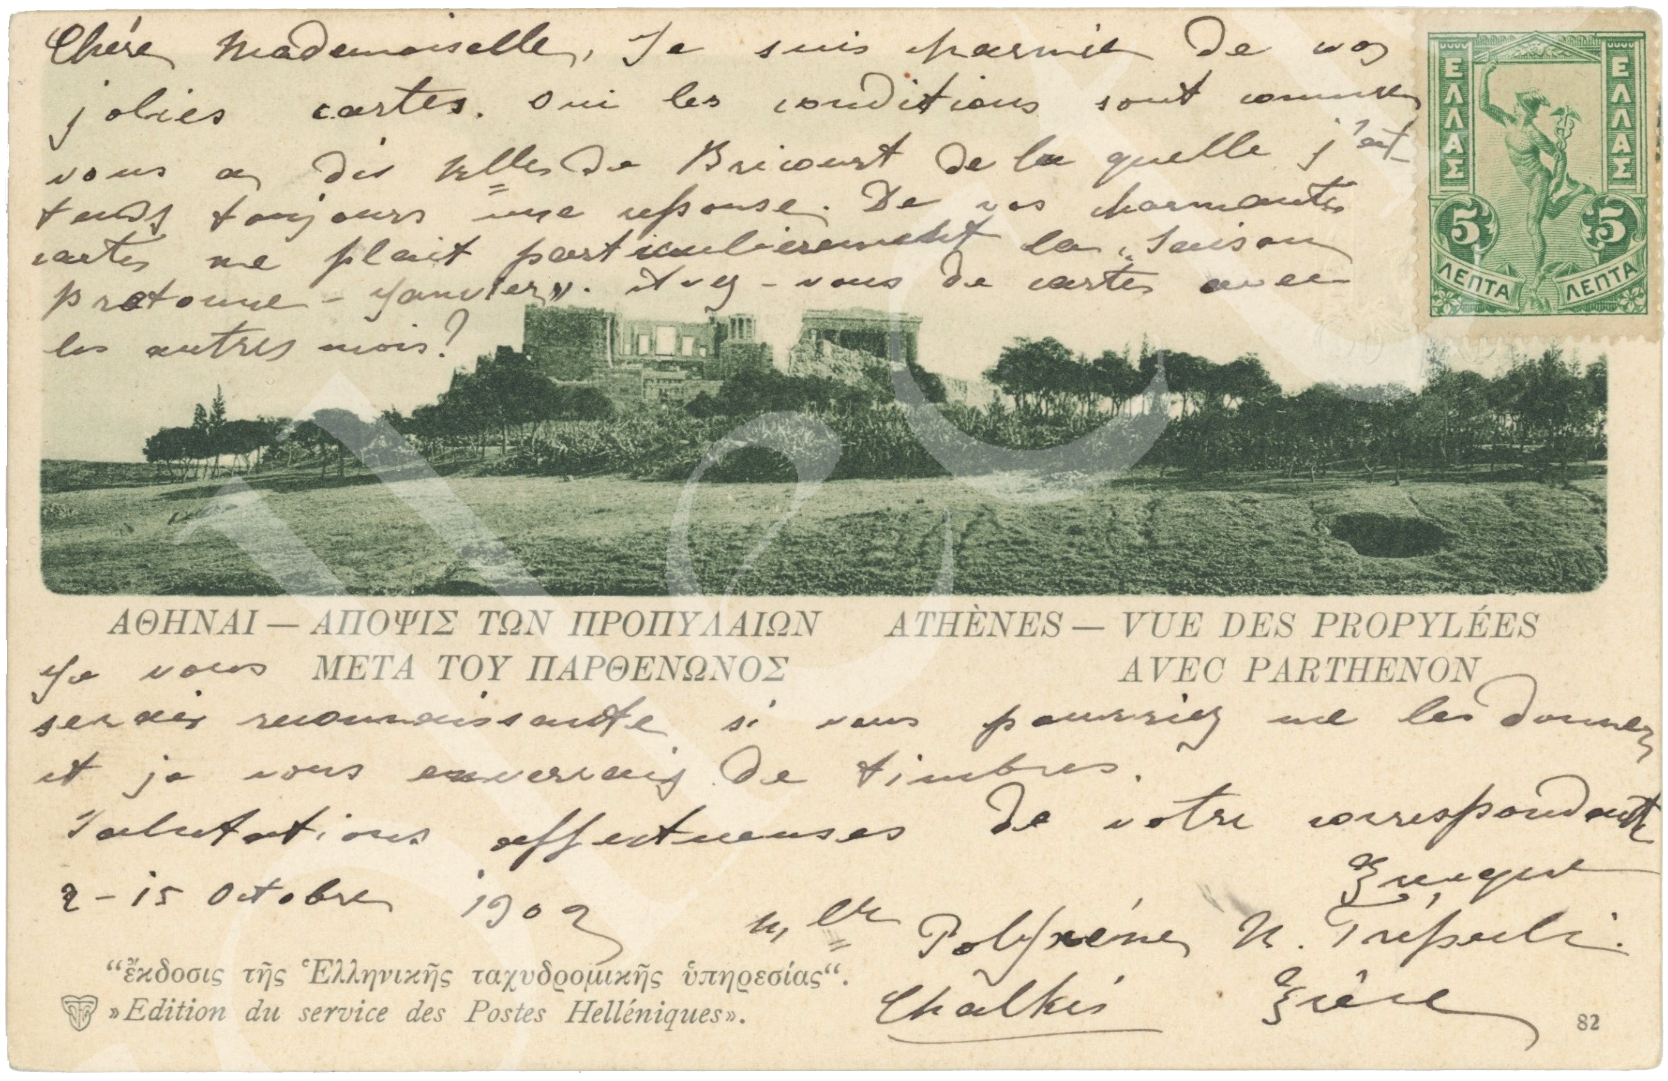 Chére Mademoiselle, Je suis parmie de vos
jolies cartes. Oui les conditions sont comme
vous a dis Mlles De Bricourt de la quelle j'at
tends toujours une reponse. De vos charmantes
cartes me plait particulièrement la „Saison
Pretoune - Janvier". Avez - vous de cartes avec
les autres mois?
ΕΛΛΑΣ
ΕΛΛΑΣ
5
5
ΛΕΠΤΑ
ΛΕΠΤΑ
ΑΘΗΝΑΙ — ΑΠΟΨΙΣ ΤΩΝ ΠΡΟΠΥΛΑΙΩΝ
ΜΕΤΑ ΤΟΥ ΠΑΡΘΕΝΩΝΟΣ
ATHÈNES — VUE DES PROPYLÉES
AVEC PARTHENON
Je vous
serais reconnaissante si vous pourriez me les donner
et je vous enverrais de timbres.
Salutations affectueuses de votre correspondante
grecque
2 - 15 Octobre 1902
Mlle Polyxéne N.
Chalkis Grèce
“ἔκδοσις τῆς Ἑλληνικῆς ταχυδρομικῆς ὑπηρεσίας“.
»Edition du service des Postes Helléniques».
82